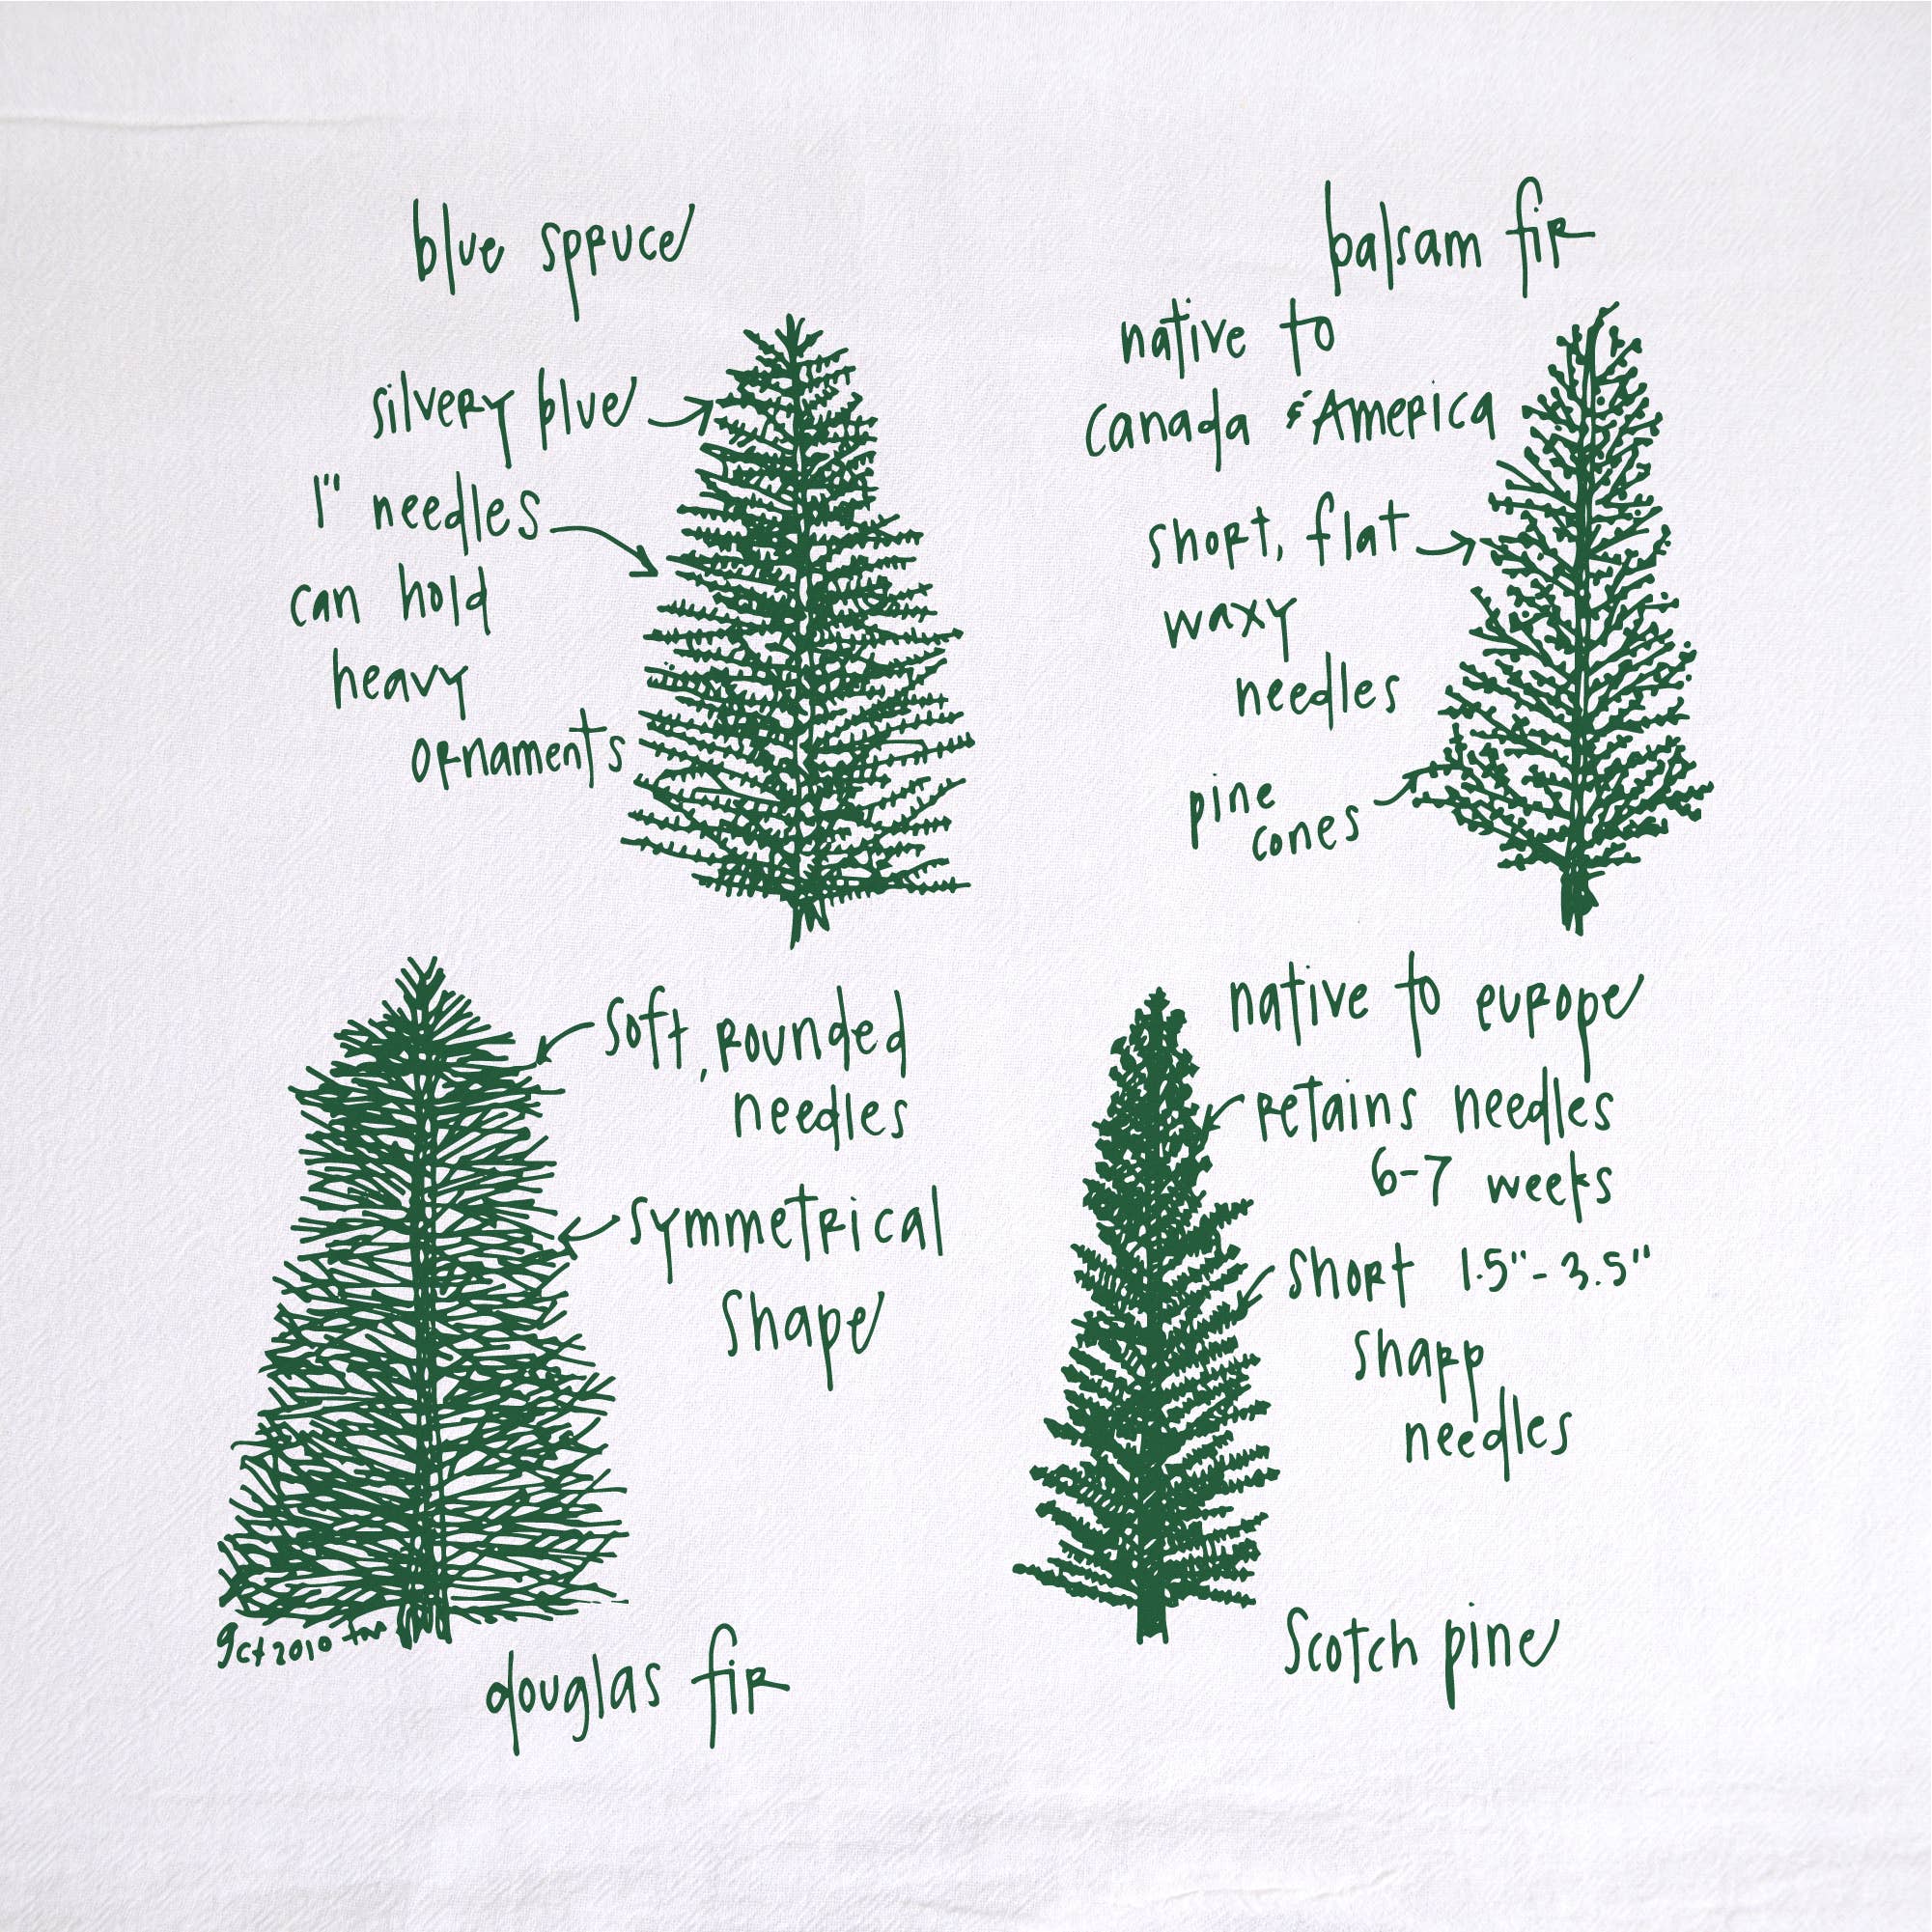 blue spruce
silvery blue
1" needles
can hold
heavy
ornaments
balsam fir
native to
Canada & America
short, flat
waxy
needles
pine
cones
soft, rounded
needles
symmetrical
shape
douglas fir
native to europe
retains needles
6-7 weeks
short 1.5"- 3.5"
sharp
needles
Scotch pine
2010